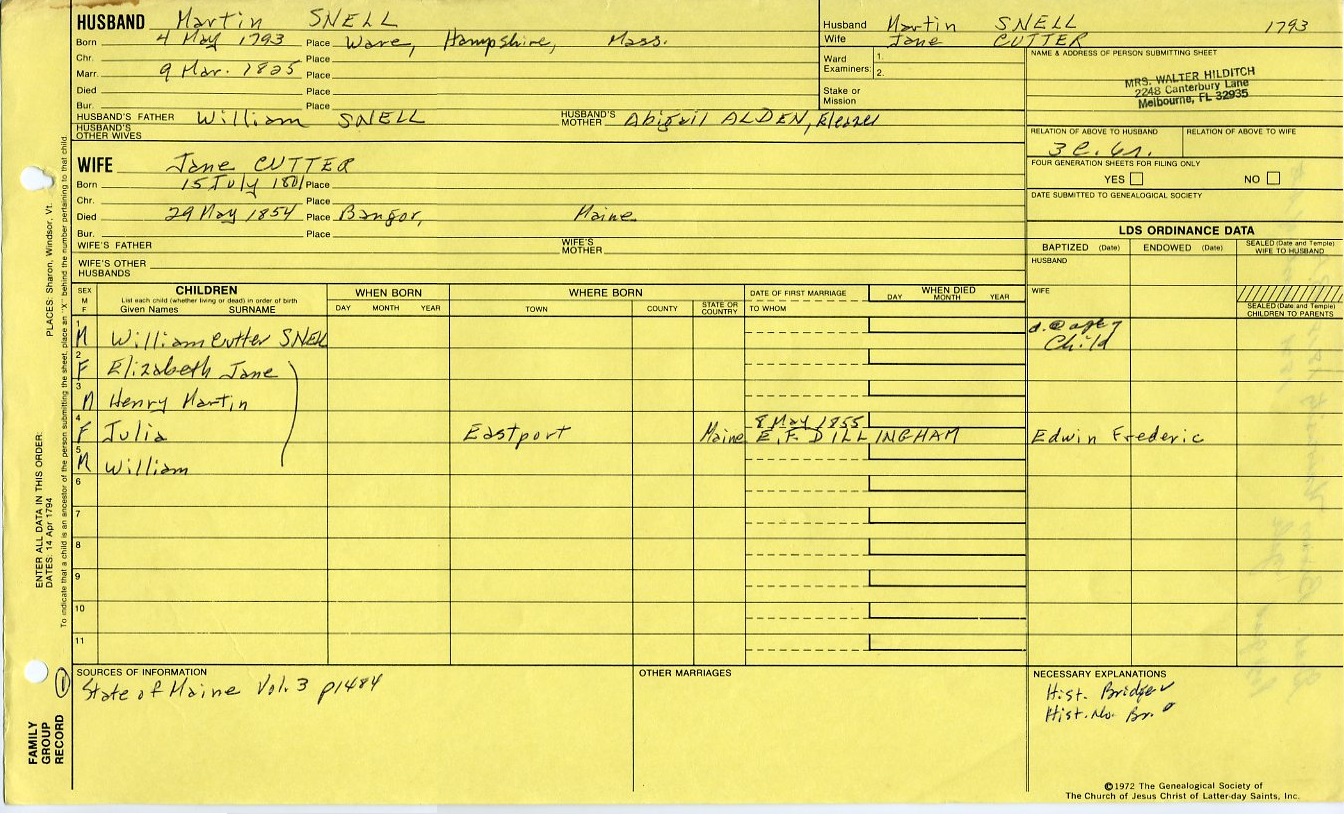 HUSBAND Martin SNELL
Born 4 May 1793 Place Ware, Hampshire, Mass.
Chr. Place
Marr. 9 Mar. 1825 Place
Died Place
Bur. Place
HUSBAND'S FATHER William SNELL HUSBAND'S MOTHER Abigail ALDEN, Eleazer
HUSBAND'S OTHER WIVES
WIFE Jane CUTTER
Born 15 July 1801 Place
Chr. Place
Died 29 May 1854 Place Bangor, Maine
Bur. Place
WIFE'S FATHER WIFE'S MOTHER
WIFE'S OTHER HUSBANDS
Husband Martin SNELL 1793
Wife Jane CUTTER
Ward Examiners: 1.
2.
Stake or Mission
NAME & ADDRESS OF PERSON SUBMITTING SHEET
MRS. WALTER HILDITCH
2248 Canterbury Lane
Melbourne, FL 32935
RELATION OF ABOVE TO HUSBAND RELATION OF ABOVE TO WIFE
3 C. 6r.
FOUR GENERATION SHEETS FOR FILING ONLY
YES NO
DATE SUBMITTED TO GENEALOGICAL SOCIETY
LDS ORDINANCE DATA
BAPTIZED (Date) ENDOWED (Date) SEALED (Date and Temple) WIFE TO HUSBAND
HUSBAND
WIFE
SEALED (Date and Temple) CHILDREN TO PARENTS
SEX M F
CHILDREN
List each child (whether living or dead) in order of birth
Given Names SURNAME
WHEN BORN
DAY MONTH YEAR
WHERE BORN
TOWN COUNTY STATE OR COUNTRY
DATE OF FIRST MARRIAGE
TO WHOM
WHEN DIED
DAY MONTH YEAR
1 M William Cutter SNELL d. @ age 7
Child
2 F Elizabeth Jane
3 M Henry Martin
4 F Julia Eastport Maine 8 May 1855
E. F. DILLINGHAM Edwin Frederic
5 M William
6
7
8
9
10
11
SOURCES OF INFORMATION
State of Maine Vol. 3 p1484
OTHER MARRIAGES
NECESSARY EXPLANATIONS
Hist. Bridge
Hist. No. Br.
©1972 The Genealogical Society of
The Church of Jesus Christ of Latter-day Saints, Inc.
ENTER ALL DATA IN THIS ORDER:
DATES: 14 Apr 1794 PLACES: Sharon, Windsor, Vt.
To indicate that a child is an ancestor of the person submitting the sheet, place an "X" behind the number pertaining to that child.
FAMILY
GROUP
RECORD
1